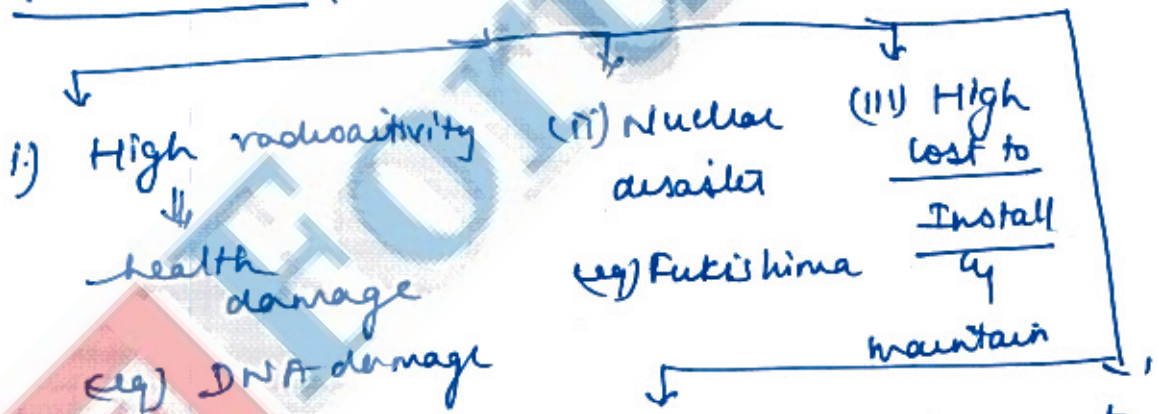 i) High radioactivity
⇓
health
damage
(eg) DNA damage
(ii) Nuclear
disaster
(eg) Fukishima
(iii) High
cost to
Install
&
maintain